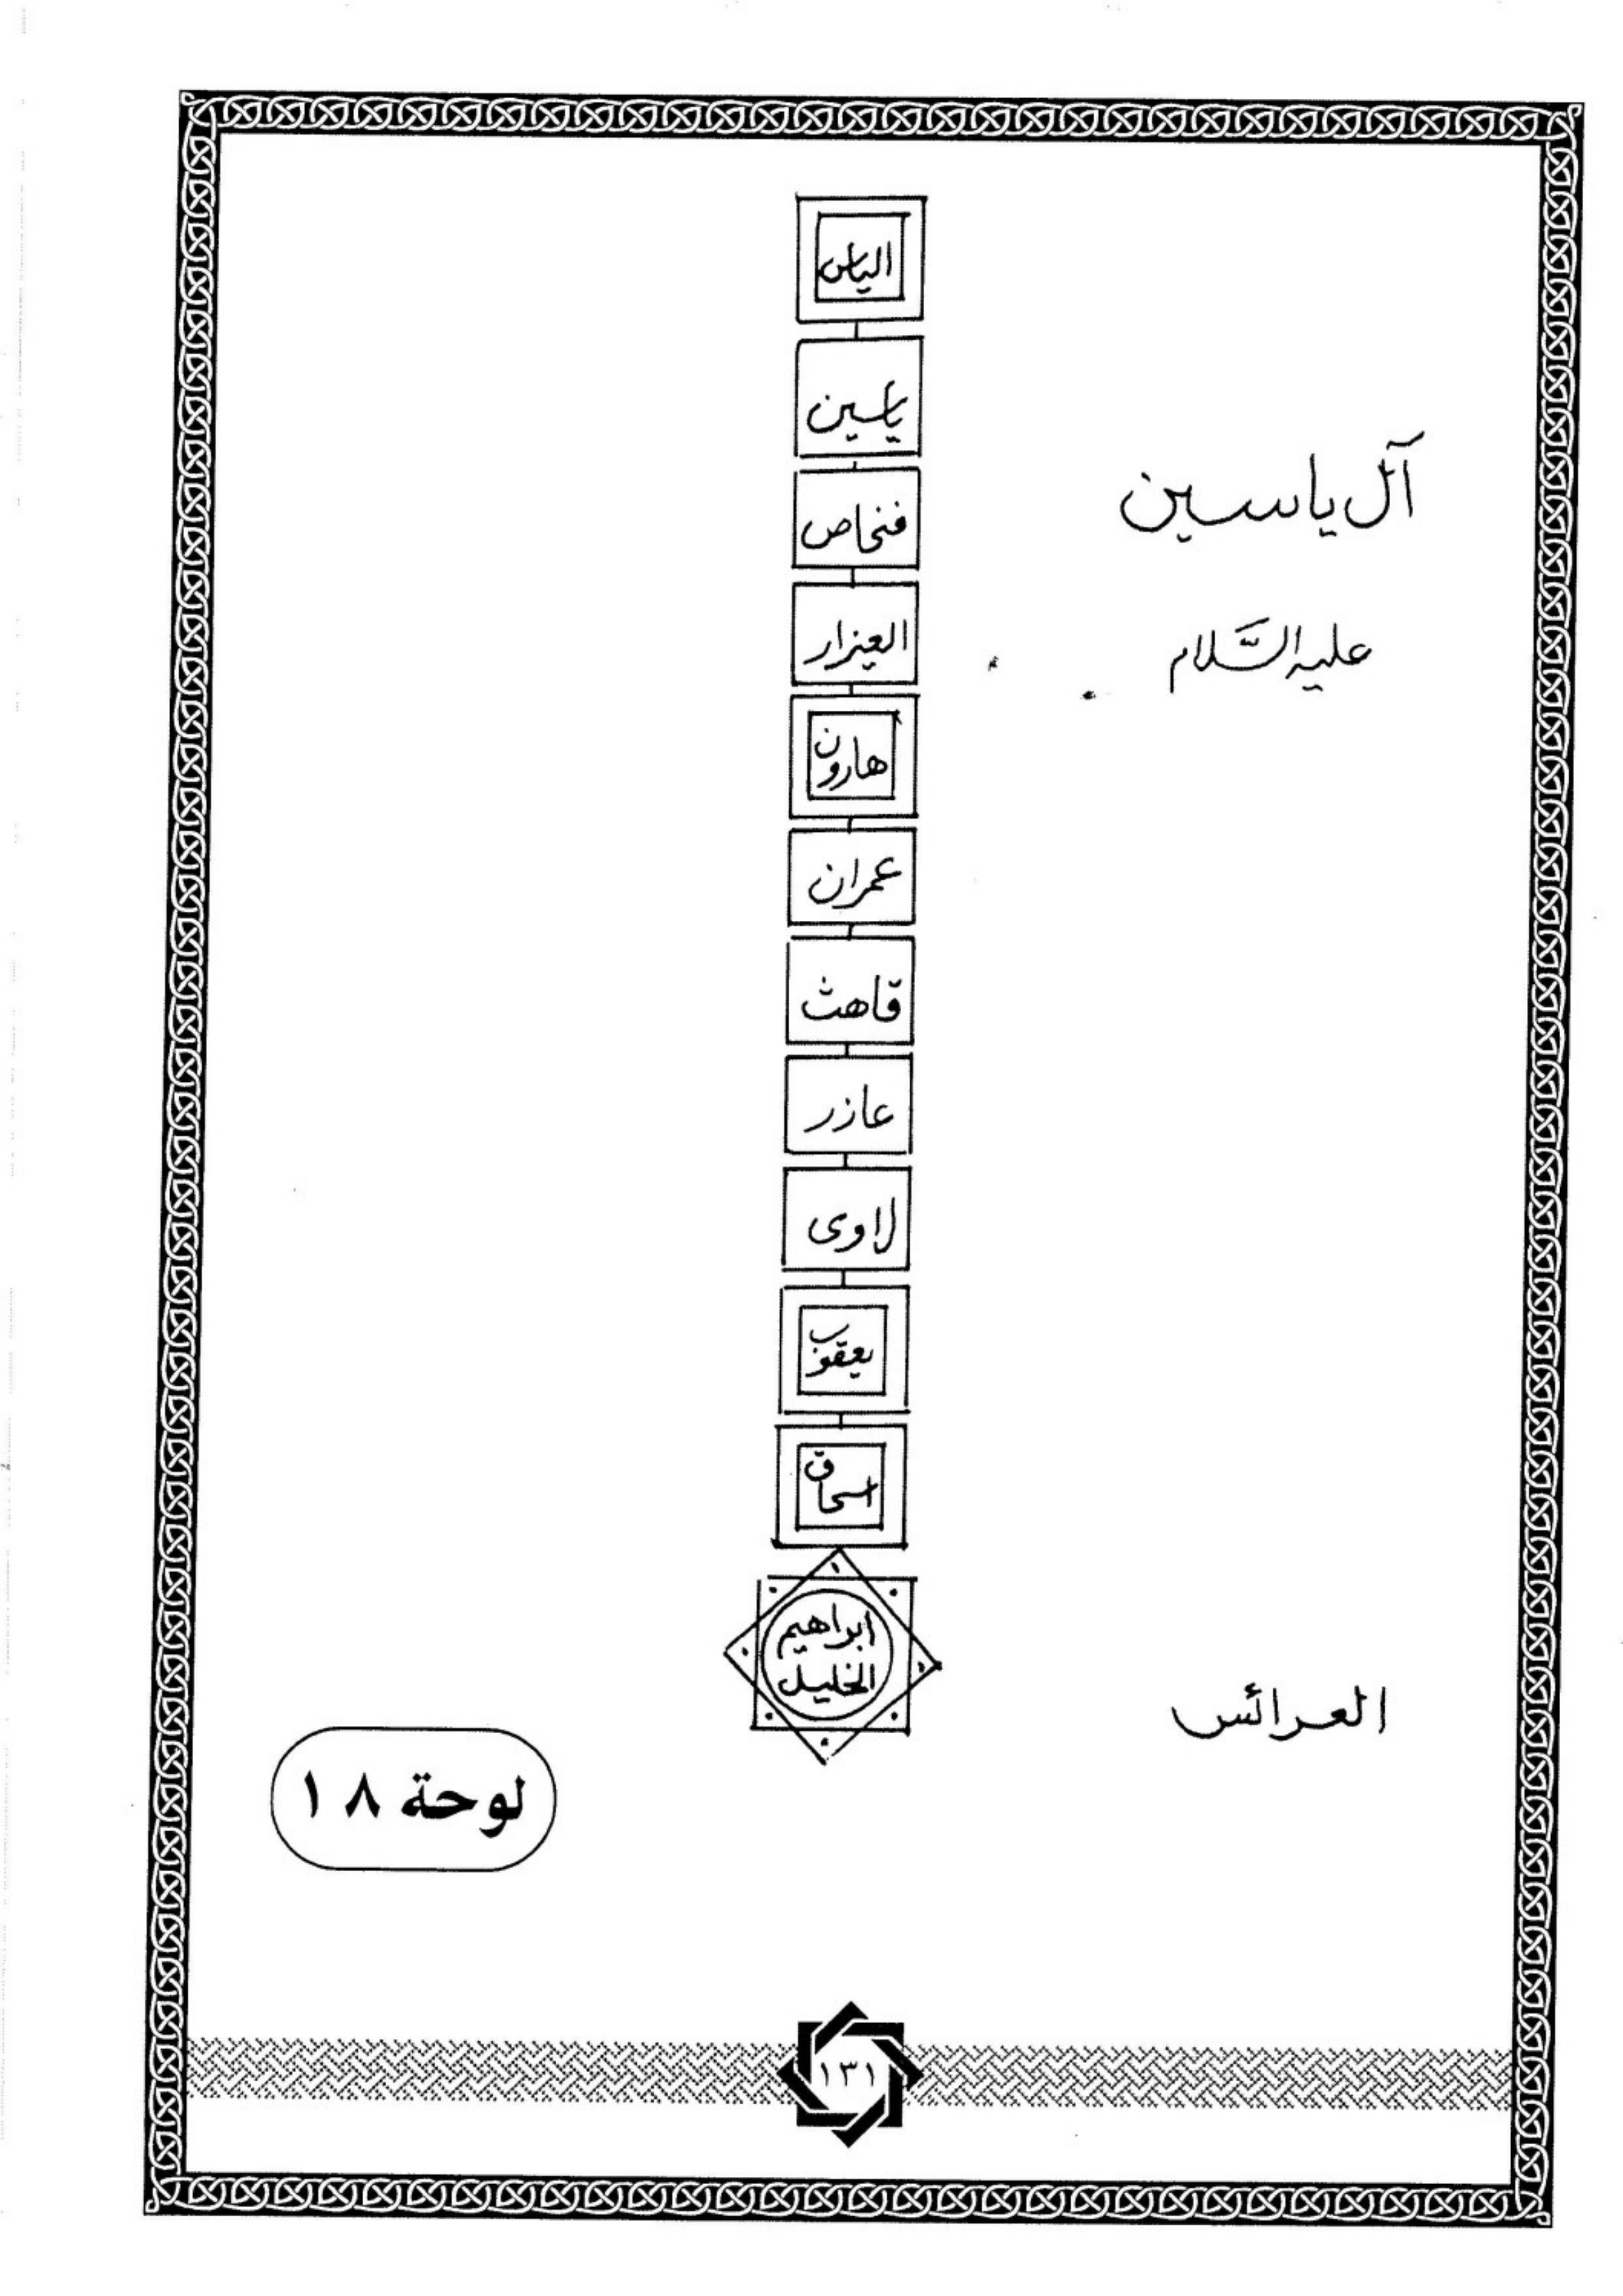 آل ياسين
عليه السَّلام
الياس
ياسين
فنحاص
العيزار
هارون
عمران
قاهث
عازر
لاوى
يعقوب
اسحاق
ابراهيم
الخليل
العرائس
لوحة ١٨
١٣١